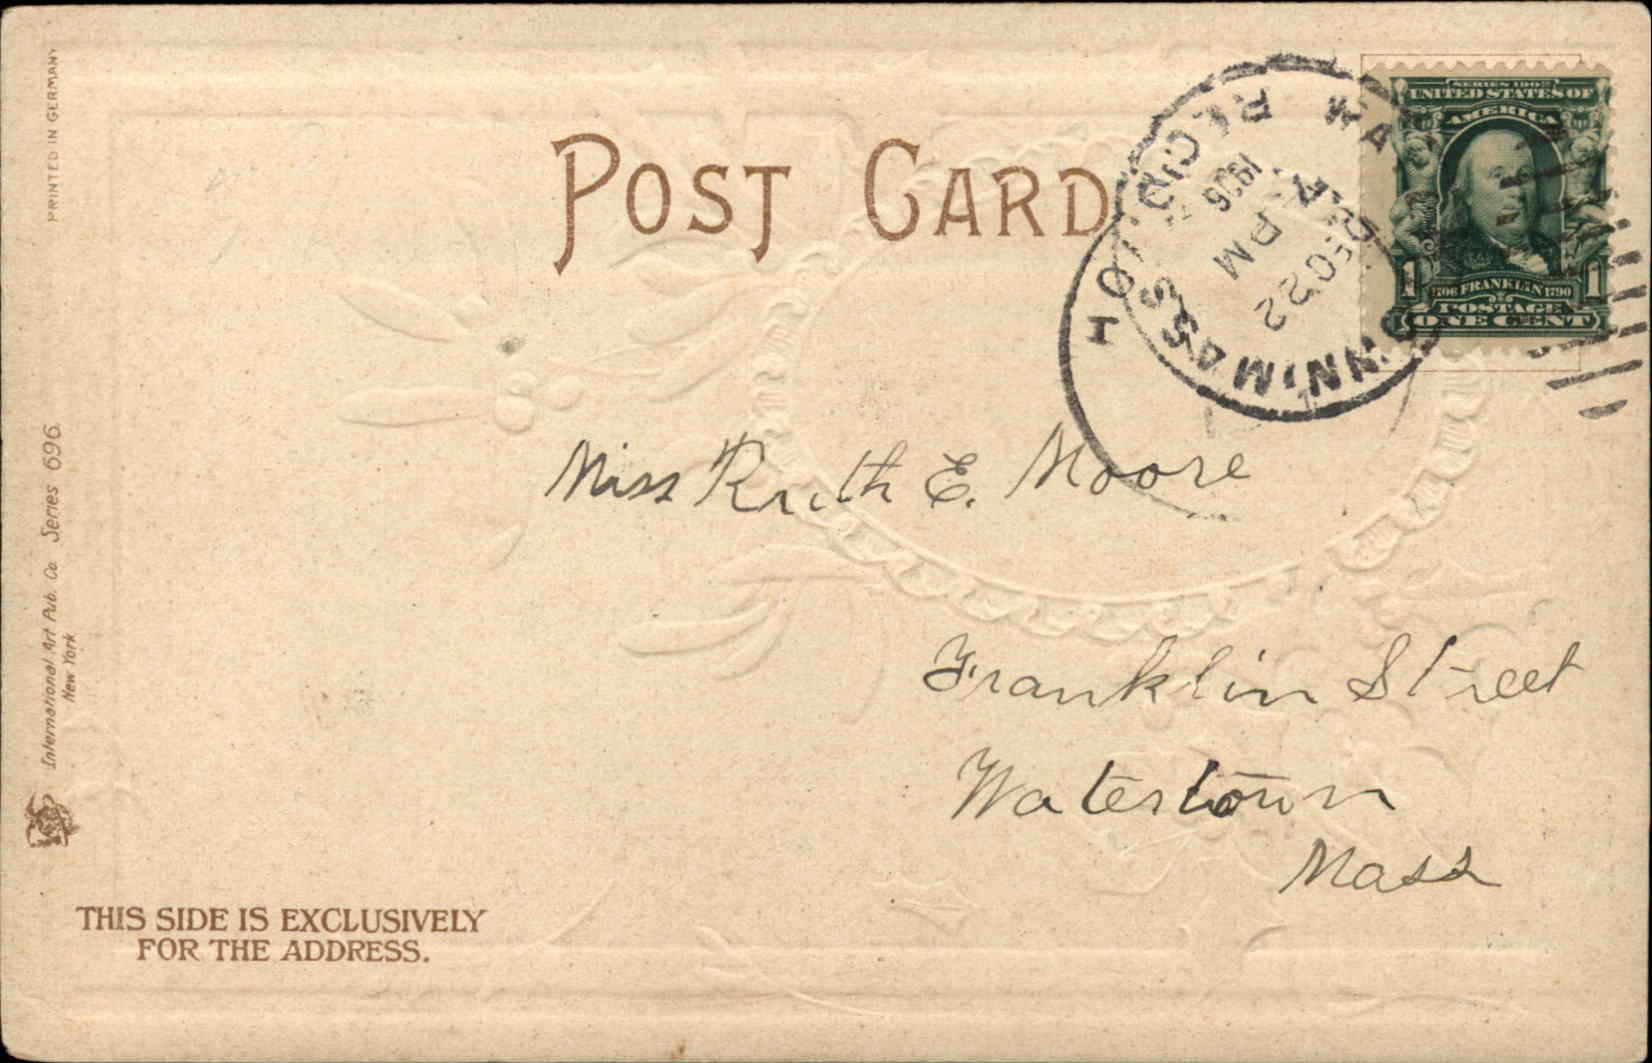 PRINTED IN GERMANY
POST CARD
SERIES 1902
UNITED STATES OF
AMERICA
1 1
1706 FRANKLIN 1790
POSTAGE
ONE CENT
REC'D.
1906
PM
DEC 22
MASS
Miss Ruth E. Moore
Franklin Street
Watertown
Mass
International Art Pub. Co Series 696.
New York
THIS SIDE IS EXCLUSIVELY
FOR THE ADDRESS.